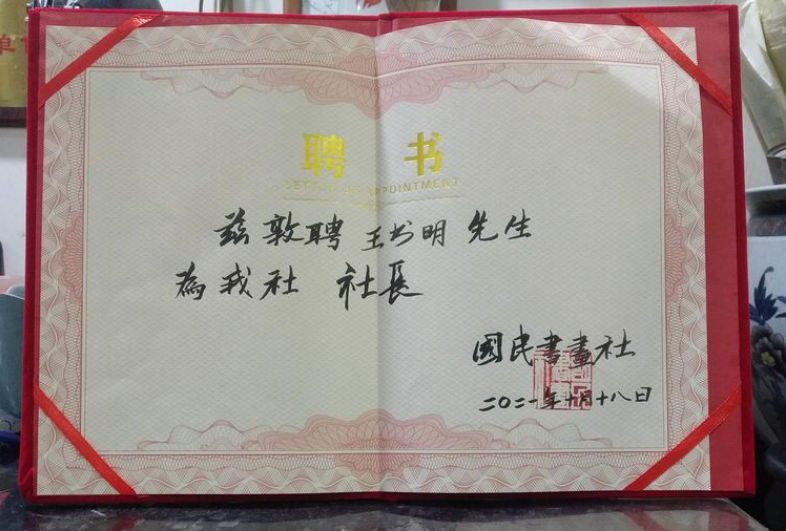 聘书
LETTER OF APPOINTMENT
兹敦聘 王书明 先生
為我社 社長
國民書畫社
二〇二一年十月十八日